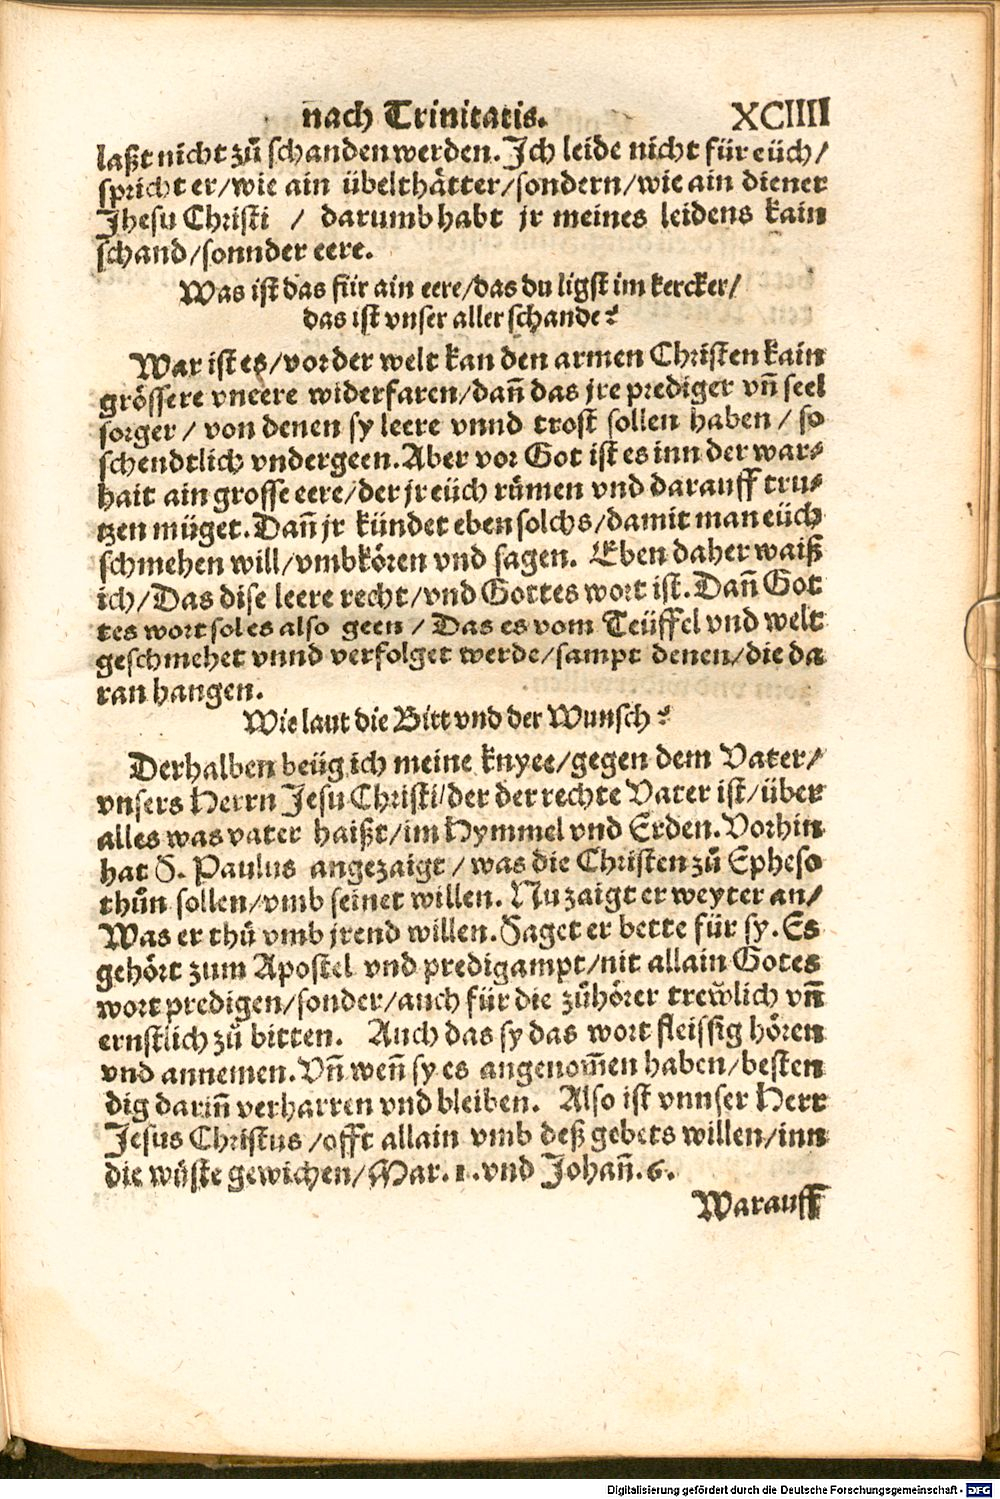 nach Trinitatis. XCIIII
laßt nicht zů schanden werden. Ich leide nicht für eüch/
spricht er/wie ain übelthätter/sondern/wie ain diener
Jhesu Christi / darumb habt jr meines leidens kain
schand/sonnder eere.
Was ist das für ain eere/das du ligst im kercker/
das ist vnser aller schande?
War ist es/vor der welt kan den armen Christen kain
grössere vneere widerfaren/dañ das jre prediger vñ seel
sorger / von denen sy leere vnnd trost sollen haben / so
schendtlich vndergeen. Aber vor Got ist es inn der war-
hait ain grosse eere/der jr eüch růmen vnd darauff tru-
tzen müget. Dañ jr kündet eben solchs/damit man eüch
schmehen will/vmbkören vnd sagen. Eben daher waiß
ich/Das dise leere recht/vnd Gottes wort ist. Dañ Got
tes wort sol es also geen / Das es vom Teüffel vnd welt
geschmehet vnnd verfolget werde/sampt denen/die da
ran hangen.
Wie laut die Bitt vnd der Wunsch?
Derhalben beüg ich meine knyee/gegen dem Vater/
vnsers Herrn Jesu Christi/der der rechte Vater ist/über
alles was vater haißt/im Hymmel vnd Erden. Vorhin
hat S. Paulus angezaigt / was die Christen zů Epheso
thůn sollen/vmb seinet willen. Nu zaigt er weyter an/
Was er thů vmb jrend willen. Saget er bette für sy. Es
gehört zum Apostel vnd predigampt/nit allain Gotes
wort predigen/sonder/auch für die zůhörer trewlich vñ
ernstlich zů bitten. Auch das sy das wort fleissig hören
vnd annemen. Vñ weñ sy es angenom̃en haben/besten
dig dariñ verharren vnd bleiben. Also ist vnnser Herr
Jesus Christus /offt allain vmb deß gebets willen/inn
die wůste gewichen/Mar. 1. vnd Johañ. 6.
Warauff
Digitalisierung gefördert durch die Deutsche Forschungsgemeinschaft - DFG